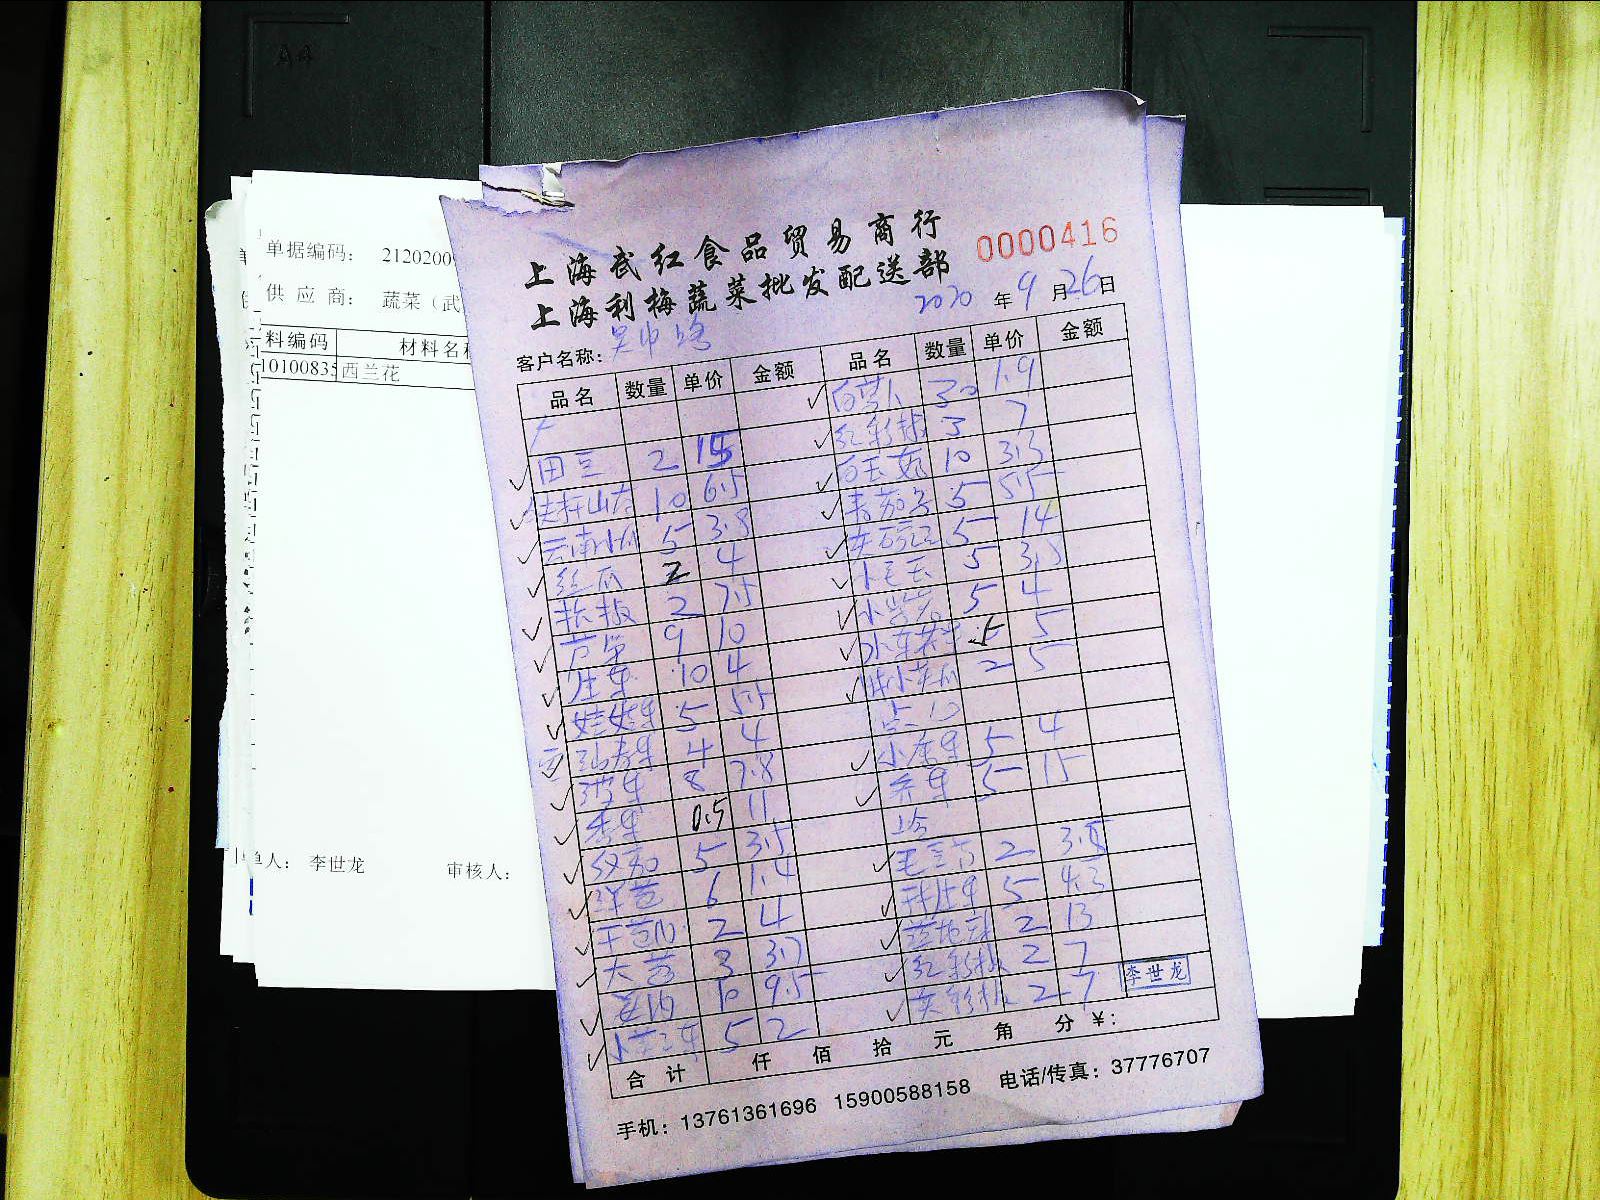 A4
单据编码： 2120200
供 应 商： 蔬菜（武
料编码 材料名称
10100835 西兰花
单人： 李世龙 审核人：
上海武红食品贸易商行
上海利梅蔬菜批发配送部
0000416
2020 年 9 月 26 日
客户名称：
品名 数量 单价 金额 品名 数量 单价 金额
白萝卜 30 1.9
红彩椒 3 7
田豆 2 15 白玉菇 10 3.3
铁杆山药 10 6.5 青茄子 5 5.5
云南小瓜 5 3.8 5 14
丝瓜 2 4 小毛玉 5 3.5
尖椒 2 7.5 5 4
芦笋 9 10 5 5
生菜 10 4 2 5
娃娃菜 5 5.5
4 4 小唐菜 5 4
菠菜 8 7.8 5 15
香菜 0.5 11
5 3.5 毛豆节 2 3.5
洋葱 6 1.4 5 4.3
2 4 2 13
大葱 3 3.7 红彩椒 2 7
10 9.5 黄彩椒 2 7
5 2
李世龙
合 计 仟 佰 拾 元 角 分 ￥：
手机：13761361696 15900588158 电话/传真：37776707